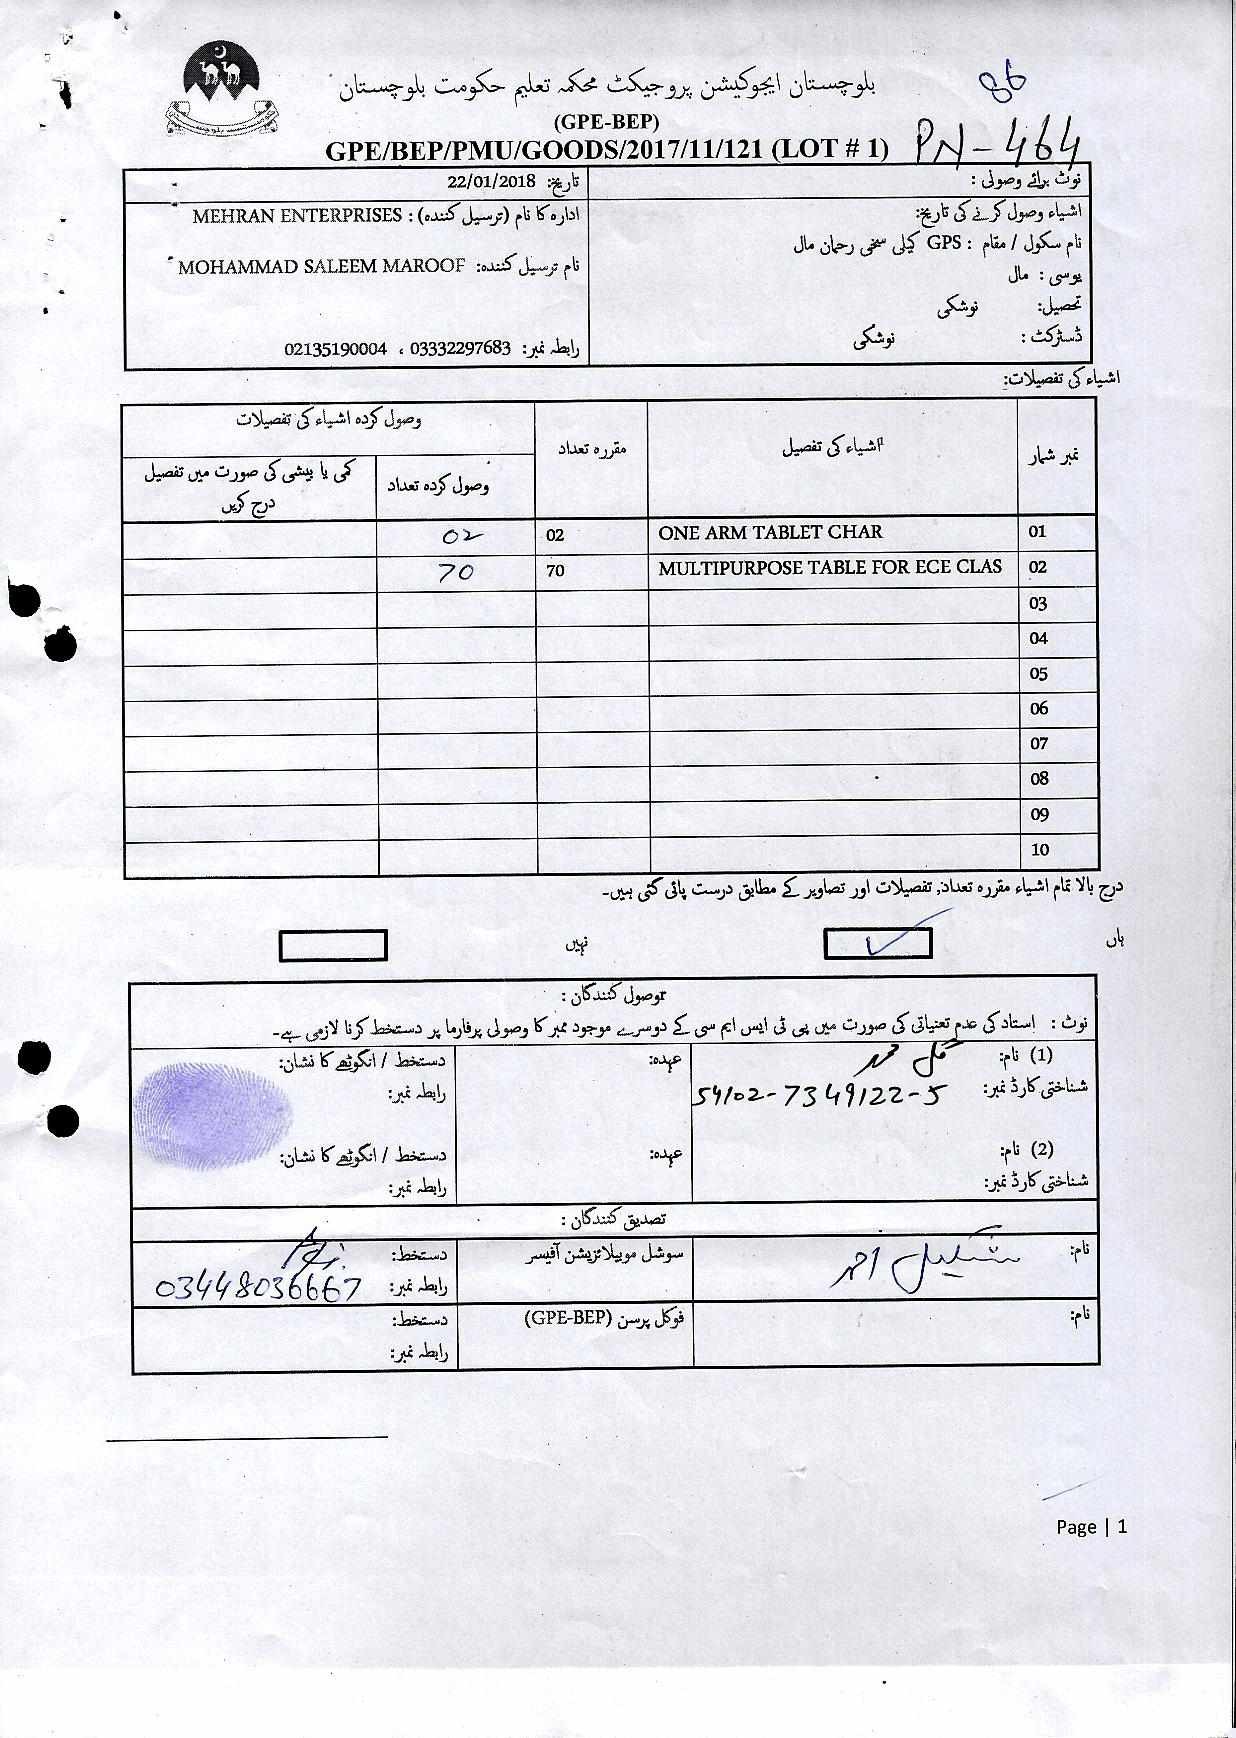 بلوچستان ایجوکیشن پروجیکٹ محکمہ تعلیم حکومت بلوچستان
86
(GPE-BEP)
GPE/BEP/PMU/GOODS/2017/11/121 (LOT # 1) PN-464
نوٹ برائے وصولی :
اشیاء وصول کرنے کی تاریخ:
نام سکول / مقام : GPS کیلی سخی رحمان مال
یوسی : مال
تحصیل: نوشکی
ڈسٹرکٹ : نوشکی
تاریخ: 22/01/2018
ادارہ کا نام (ترسیل کنندہ) : MEHRAN ENTERPRISES
نام ترسیل کنندہ: MOHAMMAD SALEEM MAROOF
رابطہ نمبر: 03332297683 ، 02135190004
اشیاء کی تفصیلات:
نمبر شمار اشیاء کی تفصیل مقررہ تعداد وصول کردہ اشیاء کی تفصیلات
وصول کردہ تعداد کمی یا بیشی کی صورت میں تفصیل درج کریں
01 ONE ARM TABLET CHAR 02 02
02 MULTIPURPOSE TABLE FOR ECE CLAS 70 70
03
04
05
06
07
08
09
10
درج بالا تمام اشیاء مقررہ تعداد, تفصیلات اور تصاویر کے مطابق درست پائی گئی ہیں۔
ہاں ✓ نہیں
وصول کنندگان :
نوٹ : استاد کی عدم تعیناتی کی صورت میں پی ٹی ایس ایم سی کے دوسرے موجود ممبر کا وصولی پرفارما پر دستخط کرنا لازمی ہے۔
(1) نام: گل محمد عہدہ: دستخط / انگوٹھے کا نشان:
شناختی کارڈ نمبر: 54102-7349122-5 رابطہ نمبر:
(2) نام: عہدہ: دستخط / انگوٹھے کا نشان:
شناختی کارڈ نمبر: رابطہ نمبر:
تصدیق کنندگان :
نام: شکیل احمد سوشل موبیلائزیشن آفیسر دستخط:
رابطہ نمبر: 03448036667
نام: فوکل پرسن (GPE-BEP) دستخط:
رابطہ نمبر:
Page | 1